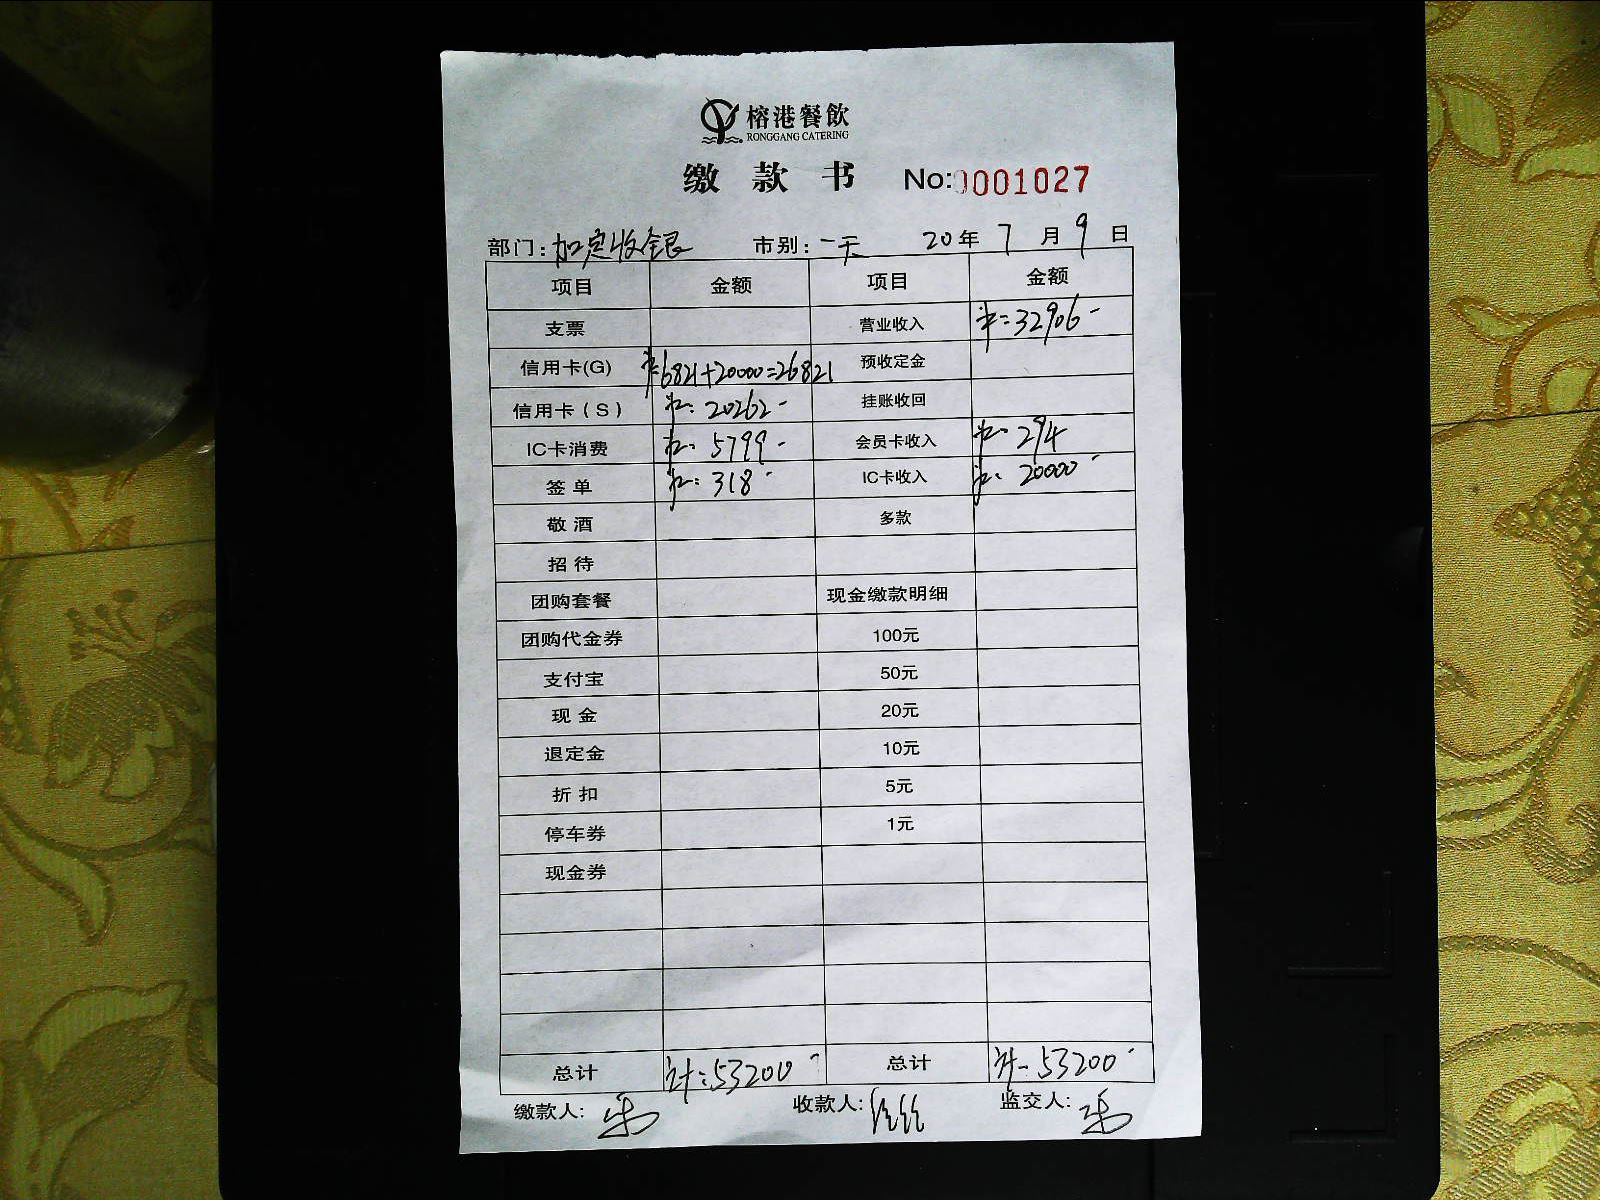 榕港餐飲
RONGGANG CATERING
缴款书 No:0001027
部门: 加定收银 市别: 一天 20年 7月 9日
项目 金额 项目 金额
支票 营业收入 32906-
信用卡(G) 6821+20000=26821 预收定金
信用卡(S) 20262- 挂账收回
IC卡消费 5799- 会员卡收入 294
签单 318- IC卡收入 20000-
敬酒 多款
招待
团购套餐 现金缴款明细
团购代金券 100元
支付宝 50元
现金 20元
退定金 10元
折扣 5元
停车券 1元
现金券
总计 计:53200- 总计 计-53200-
缴款人: 收款人: 监交人: